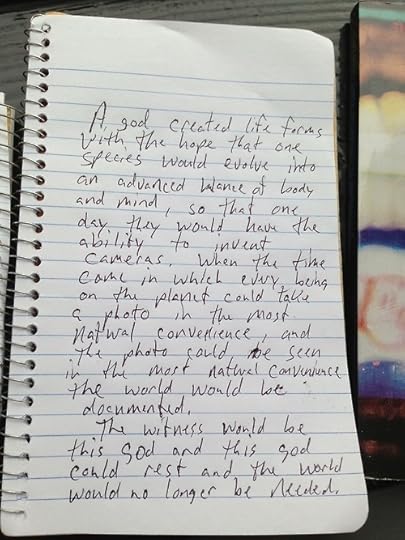 A god created life forms
with the hope that one
species would evolve into
an advanced balance of body
and mind, so that one
day they would have the
ability to invent
cameras. When the time
came in which every being
on the planet could take
a photo in the most
natural convenience, and
the photo could be seen
in the most natural convenience
the world would be
documented.
The witness would be
this god and this god
could rest and the world
would no longer be needed.